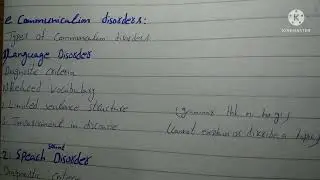 2. Communication disorders:
Types of Communication disorders
1) Language Disorder
Diagnostic criteria
1) Reduced Vocabulary
2. Limited sentence structure (grammar
3. Impairment in discourse (cannot
sound
2: Speach Disorder
Diagnostic criteria
KINEMASTER